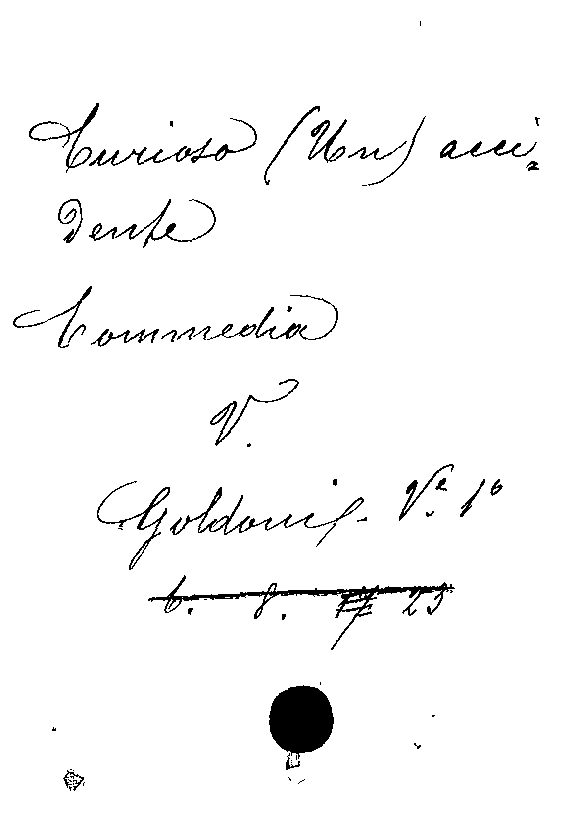 Curioso (Un) acci=
dente
Commedia
V.
Goldoni - Ve. 1º
6. 8. 23